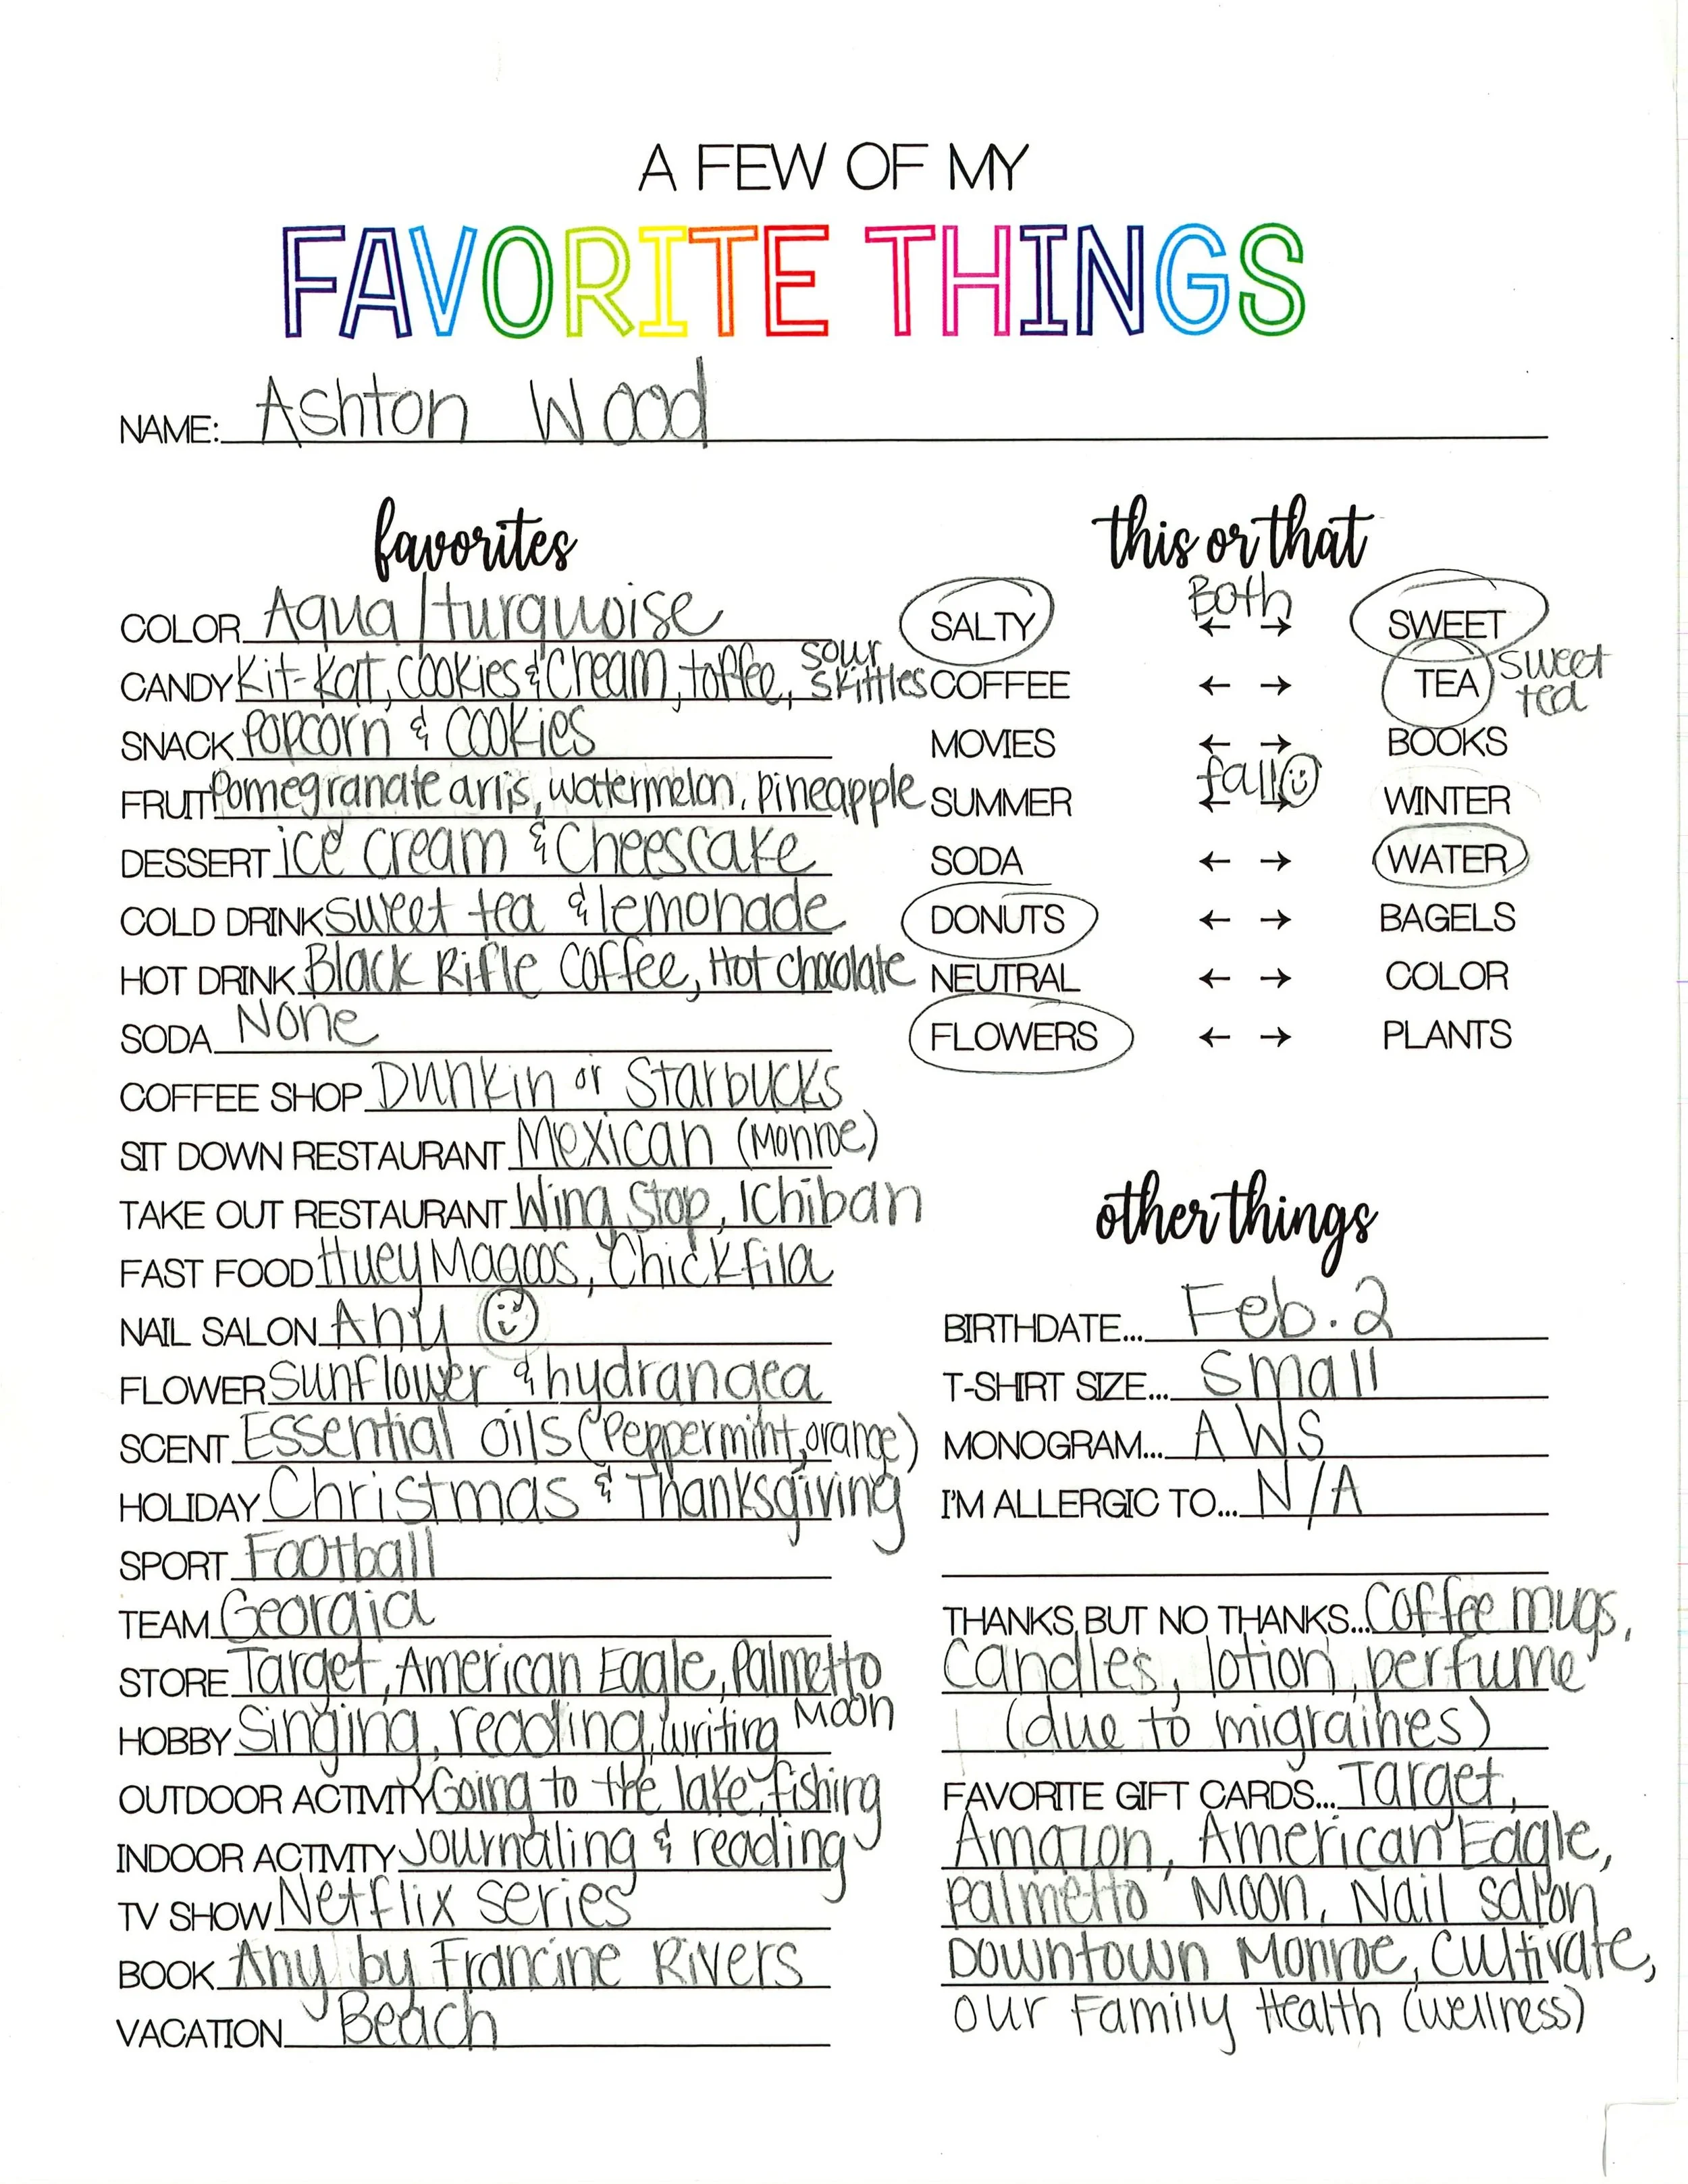 A FEW OF MY
FAVORITE THINGS
NAME: Ashton Wood
favorites
COLOR Aqua/turquoise
CANDY Kit-Kat, Cookies & Cream, toffee, sour skittles
SNACK Popcorn & Cookies
FRUIT Pomegranate arils, watermelon, pineapple
DESSERT ice cream & Cheescake
COLD DRINK sweet tea & lemonade
HOT DRINK Black Rifle Coffee, Hot chocolate
SODA None
COFFEE SHOP Dunkin or Starbucks
SIT DOWN RESTAURANT Mexican (Monroe)
TAKE OUT RESTAURANT Wing Stop, Ichiban
FAST FOOD Huey Magoos, Chickfila
NAIL SALON Any
FLOWER Sunflower & hydrangea
SCENT Essential oils (Peppermint, orange)
HOLIDAY Christmas & Thanksgiving
SPORT Football
TEAM Georgia
STORE Target, American Eagle, Palmetto Moon
HOBBY Singing, reading, writing
OUTDOOR ACTIVITY Going to the lake, fishing
INDOOR ACTIVITY Journaling & reading
TV SHOW Netflix series
BOOK Any by Francine Rivers
VACATION Beach
this or that
Both
SALTY ← → SWEET
COFFEE ← → TEA sweet tea
MOVIES ← → BOOKS
fall
SUMMER ← → WINTER
SODA ← → WATER
DONUTS ← → BAGELS
NEUTRAL ← → COLOR
FLOWERS ← → PLANTS
other things
BIRTHDATE... Feb. 2
T-SHIRT SIZE... Small
MONOGRAM... AWS
I'M ALLERGIC TO... N/A
THANKS, BUT NO THANKS... Coffee mugs,
Candles, lotion, perfume
(due to migraines)
FAVORITE GIFT CARDS... Target,
Amazon, American Eagle,
Palmetto Moon, Nail salon
Downtown Monroe, Cultivate,
Our Family Health (wellness)